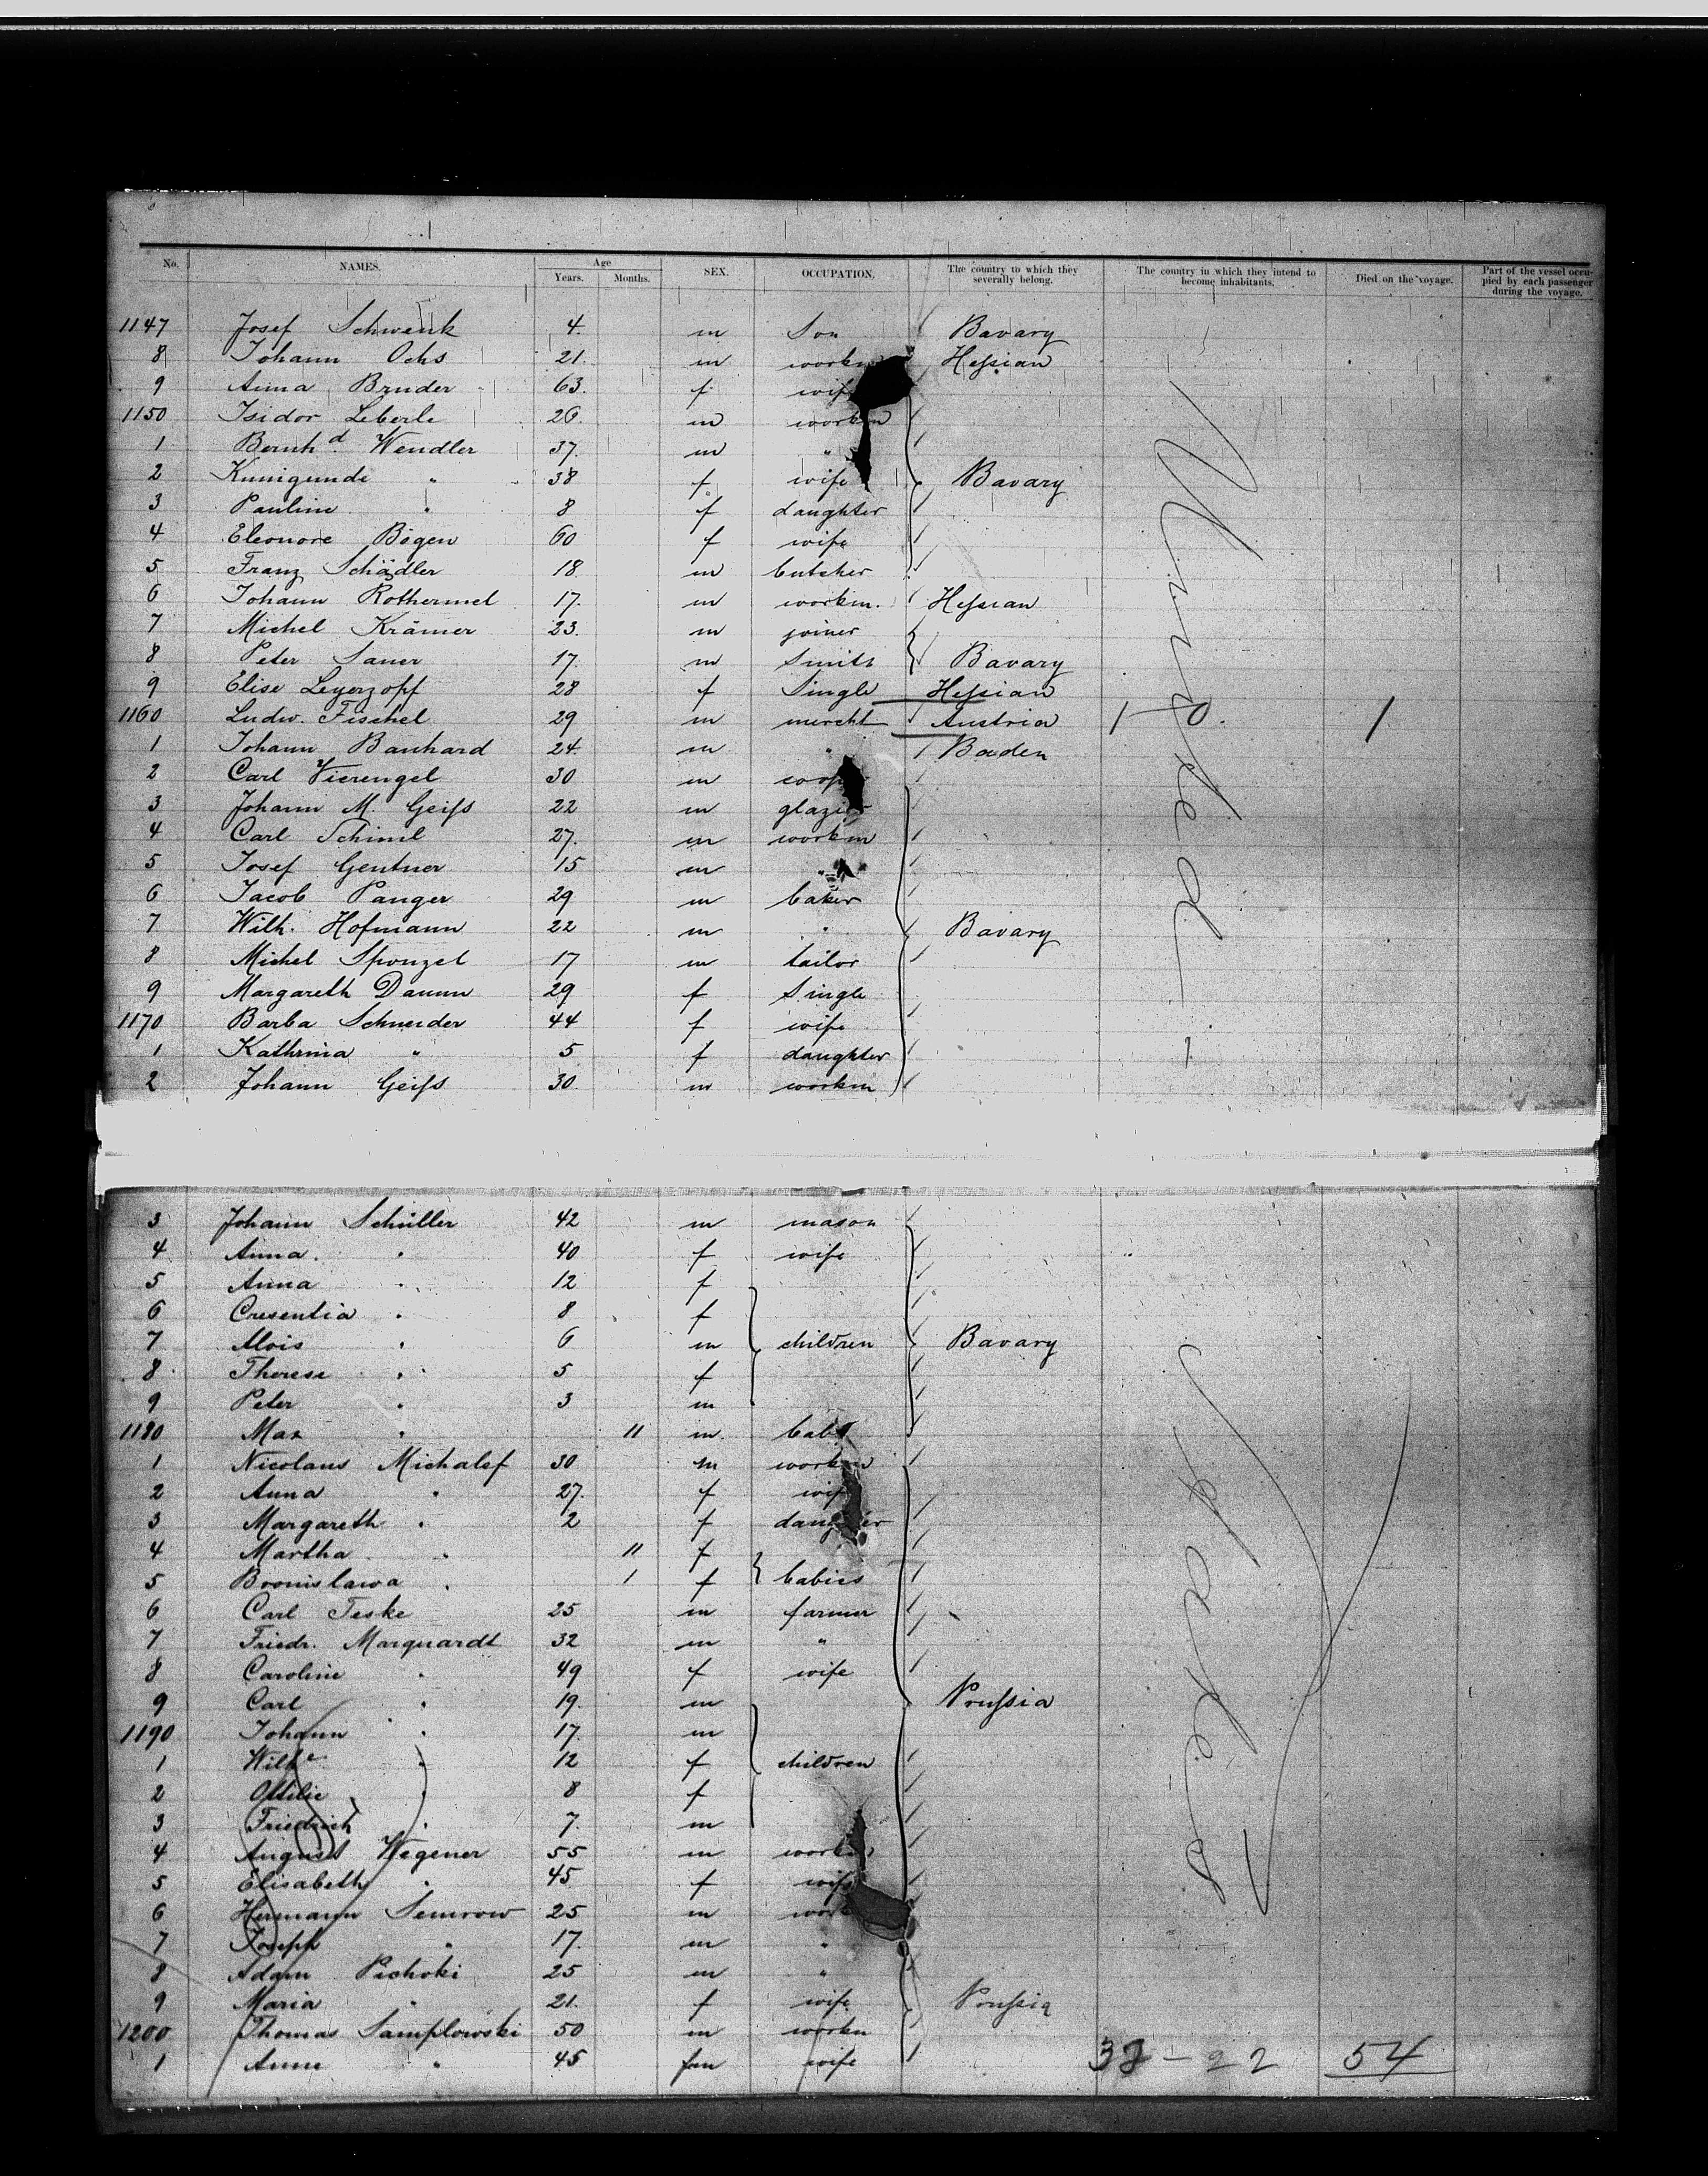 No. NAMES. Age Years. Months. SEX. OCCUPATION. The country to which they severally belong. The country in which they intend to become inhabitants. Died on the voyage. Part of the vessel occupied by each passenger during the voyage.
1147 Josef Schwenk 4. m Son Bavary
8 Johann Ochs 21. m workm Heſsian
9 Anna Bruder 63. f wife
1150 Isidor Leberle 26. m workm
1 Bernhd. Wendler 37. m "
2 Kunigunde " 38 f wife Bavary
3 Pauline " 8 f daughter
4 Eleonore Bögen 60 f wife
5 Franz Schädler 18 m butcher
6 Johann Rothermel 17. m workm. Heſsian
7 Michel Krämer 23. m joiner
8 Peter Sauer 17. m Smith Bavary
9 Elise Leyerzopf 28 f Single Heſsian
1160 Ludw. Fischel 29 m mercht Austria 1 0. 1
1 Johann Banhard 24. m " Baden
2 Carl Vierengel 30 m coop
3 Johann M. Geiſs 22 m glazier
4 Carl Schiml 27. m workm
5 Josef Gentner 15 m "
6 Jacob Panger 29 m baker
7 Wilh. Hofmann 22 m " Bavary
8 Michel Sponzel 17 m tailor
9 Margareth Daumn 29 f Single
1170 Barba Schneider 44 f wife
1 Kathrina " 5 f daughter
2 Johann Geiſs 30. m workm
United
3 Johann Schüller 42 m mason
4 Anna " 40 f wife
5 Anna " 12 f
6 Cresentia " 8 f
7 Alois " 6 m children Bavary
8 Therese " 5 f
9 Peter " 3 m
1180 Max " 11 m baby
1 Nicolaus Michalsf 30 m workm
2 Anna " 27. f wife
3 Margareth " 2 f daughter
4 Martha " 11 f
5 Bronislawa " 1 f babies
6 Carl Teske 25 m farmer
7 Friedr. Marquardt 32 m "
8 Caroline " 49 f wife
9 Carl " 19. m Pruſsia
1190 Johann " 17. m
1 Wilhe " 12 f children
2 Ottilie " 8 f
3 Friedrich " 7. m
4 August Wegener 55 m workm
5 Elisabeth " 45 f wife
6 Hermann Semrow 25 m work
7 Joseph " 17. m "
8 Adam Pichoki 25 m "
9 Maria " 21. f wife Pruſsia
1200 Thomas Samplowski 50 m workm
1 Anne " 45 fm wife
States
32 - 22 54